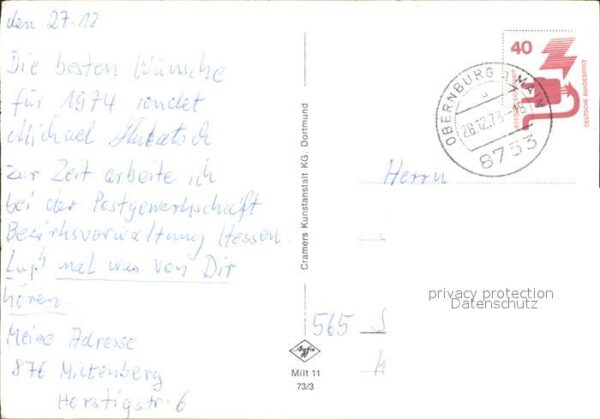 den 27.12
Die besten Wünsche
für 1974 sendet
Michael
zur Zeit arbeite ich
bei der Postgewerkschaft
Bezirksverwaltung Hessen.
mal was von Dir
hören.
Meine Adresse
876 Miltenberg
Herstigstr. 6
Cramers Kunstanstalt KG, Dortmund
Agfa
Milt 11
73/3
40
DEUTSCHE BUNDESPOST
OBERNBURG MAIN
28.12.73
8753
Herrn
565
privacy protection
Datenschutz